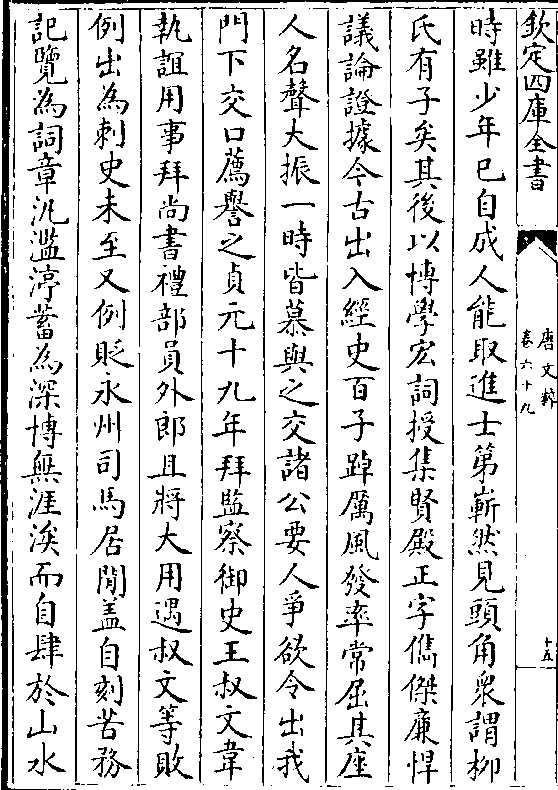 欽定四庫全書
唐文粹
卷六十九
十五
時雖少年已自成人能取進士第嶄然見頭角衆謂柳
氏有子矣其後以博學宏詞授集賢殿正字儁傑廉悍
議論證據今古出入經史百子踔厲風發率常屈其座
人名聲大振一時皆慕與之交諸公要人爭欲令出我
門下交口薦譽之貞元十九年拜監察御史王叔文韋
執誼用事拜尚書禮部員外郎且將大用遇叔文等敗
例出為刺史未至又例貶永州司馬居閒盖自刻苦務
記覽為詞章汎濫渟蓄為深博無涯涘而自肆於山水